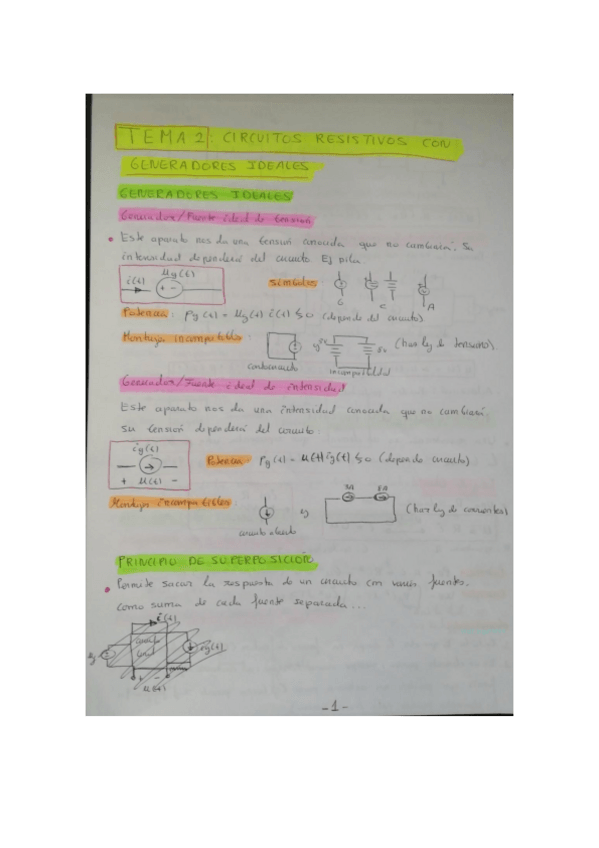 TEMA 2: CIRCUITOS RESISTIVOS CON
GENERADORES IDEALES
GENERADORES IDEALES
Generador/Fuente ideal de tensión
Este aparato nos da una tensión conocida que no cambiará. Su
intensidad dependerá del circuito. Ej pila.
i(t) ug(t) + -
símbolos
C C A
Potencia: pg(t) = ug(t) i(t) ≶ 0 (depende del circuito)
Montajes incompatibles: (por ley de tensiones).
cortocircuito incompatibilidad
Generador/Fuente ideal de intensidad
Este aparato nos da una intensidad conocida que no cambiará.
su tensión dependerá del circuito.
ig(t)
+ u(t) -
Potencia pg(t) = u(t) ig(t) ≶ 0 (depende circuito)
Montajes incompatibles (por ley de corrientes)
circuito abierto
PRINCIPIO DE SUPERPOSICIÓN
Permite sacar la respuesta de un circuito con varias fuentes.
como suma de cada fuente separada...
i(t)
ig(t)
+ -
u(t)
-1-